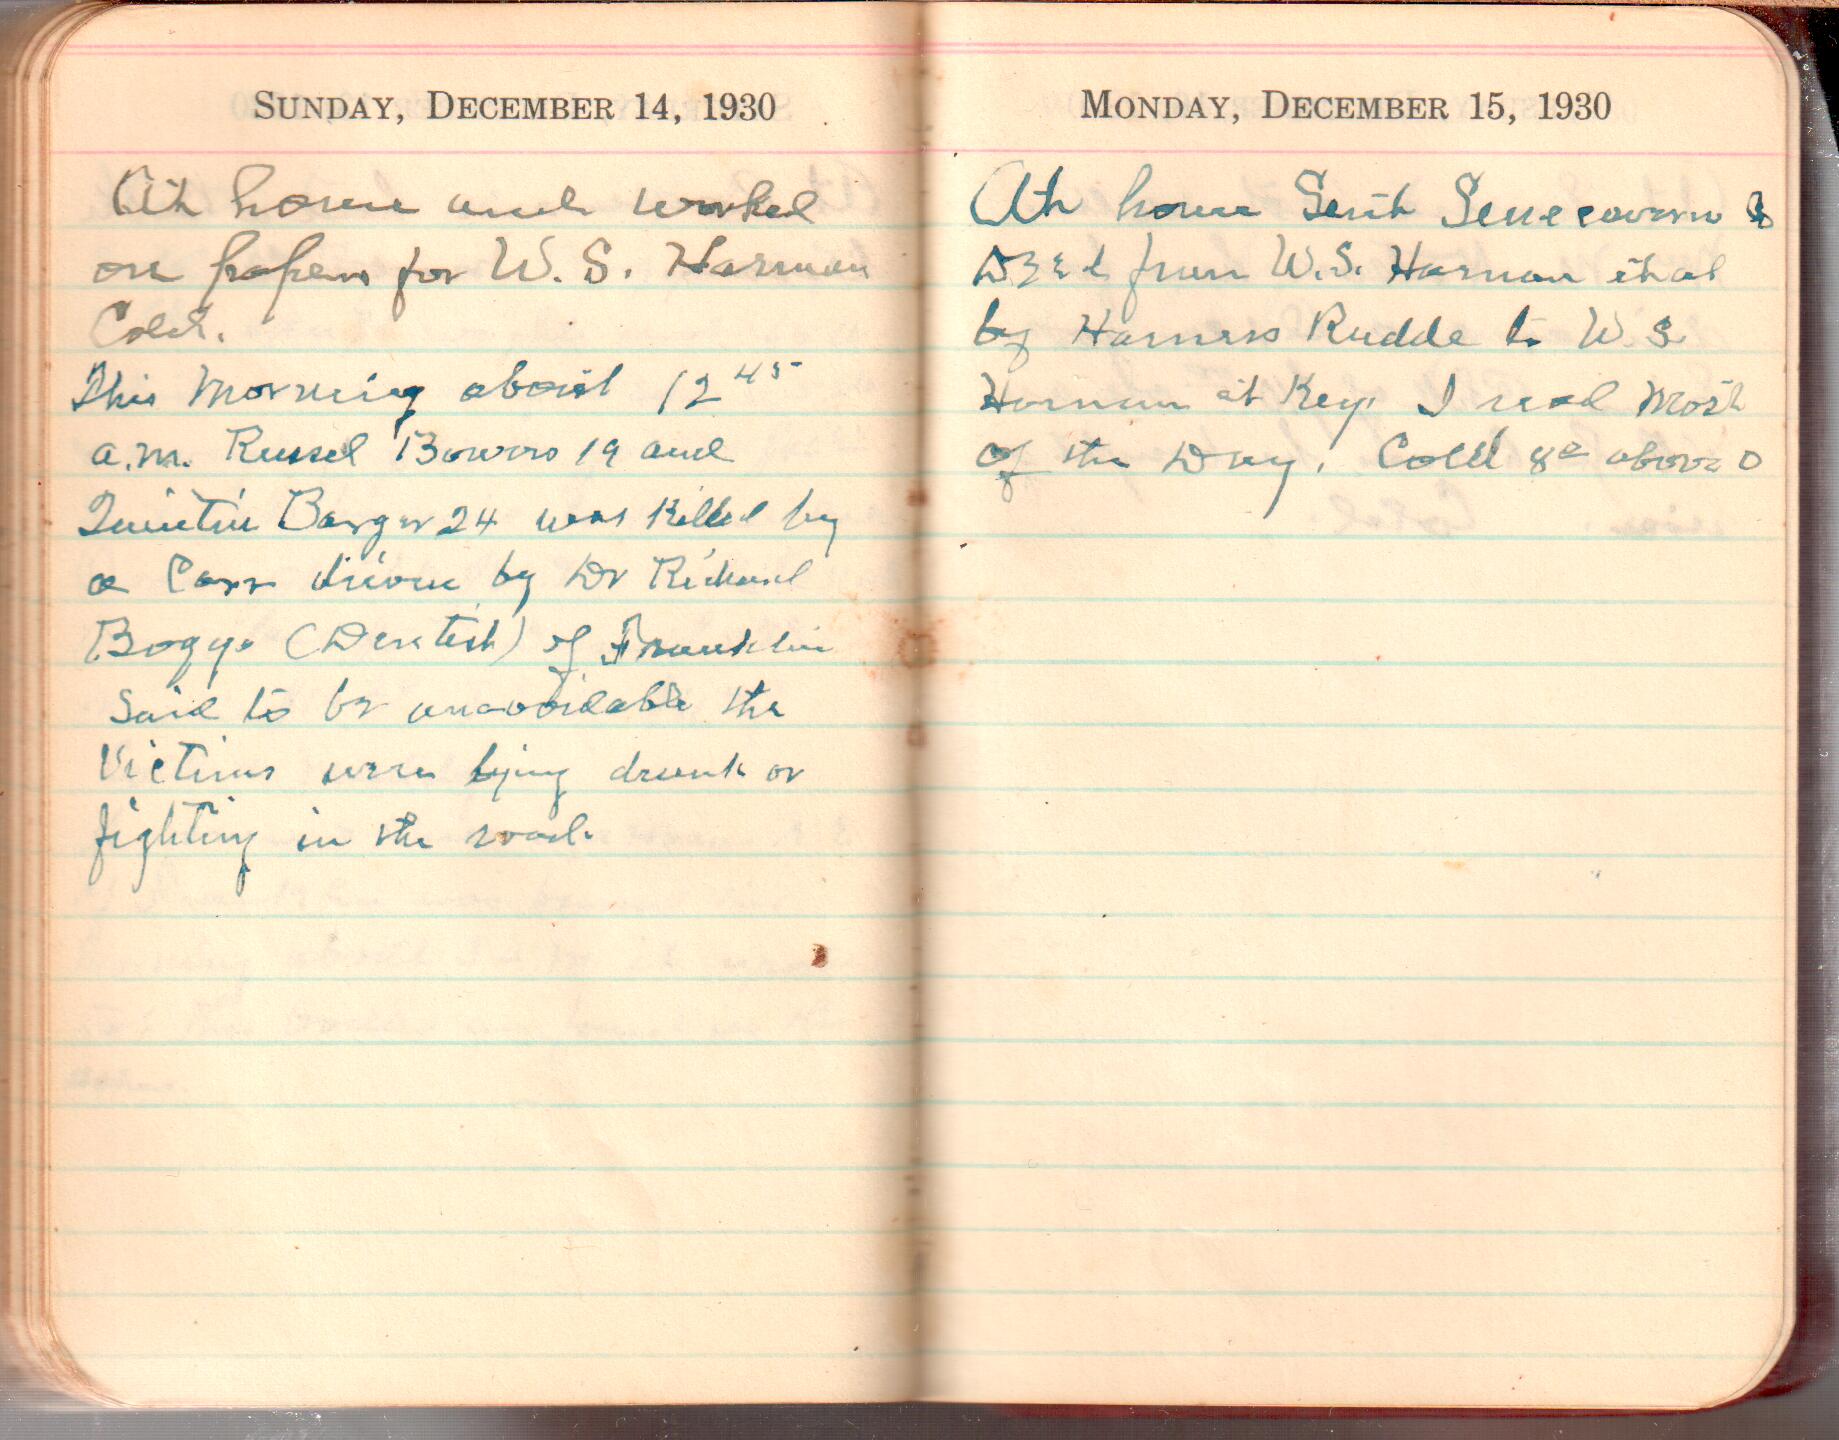 SUNDAY, DECEMBER 14, 1930
At home and worked
on papers for W. S. Harman
Cold.
This Morning about 12 45
a.m. Russel Bowers 19 and
Quintin Barger 24 was Killed by
a Carr driven by Dr Richard
Boggs (Dentist) of Franklin
Said to be unavoidable the
Victims were lying drunk or
fighting in the road.
MONDAY, DECEMBER 15, 1930
At home Sent
Deed from W. S. Harman et al
by Harness Rudde to W. S.
Harman at Key. I read Most
of the Day. Cold 8° above 0